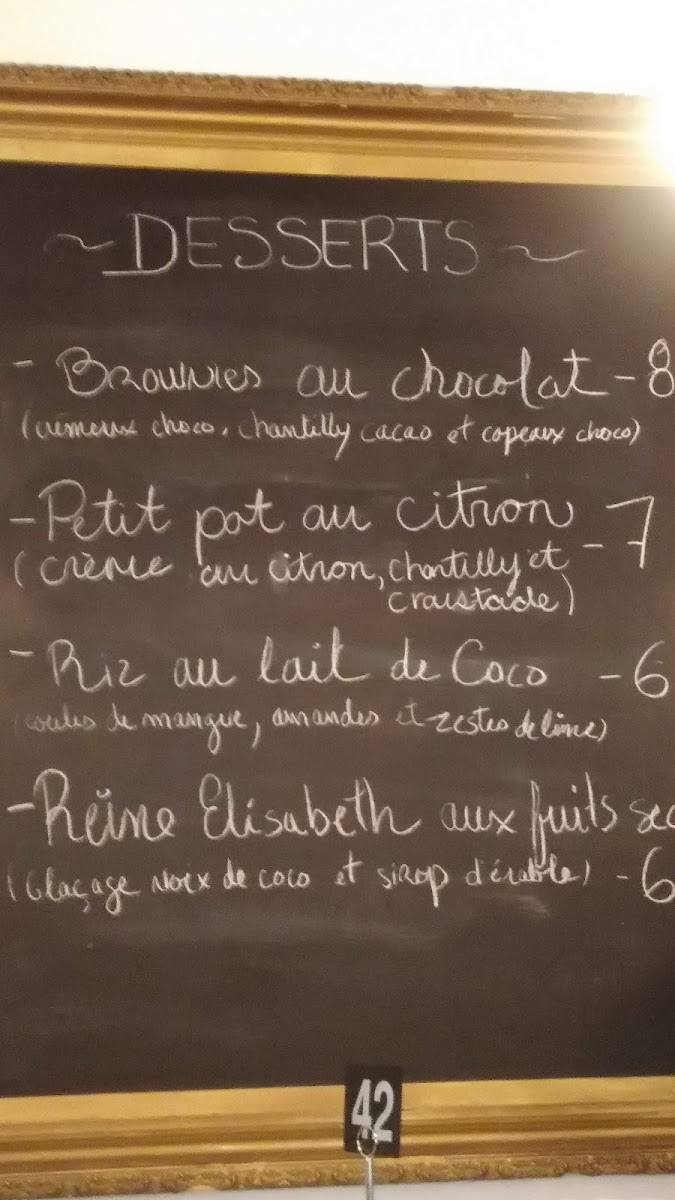 ~ DESSERTS ~
- Brownies au chocolat - 8
(crémeux choco, chantilly cacao et copeaux choco)
- Petit pot au citron - 7
(crème au citron, chantilly et
croustade)
- Riz au lait de Coco - 6
(coulis de mangue, amandes et zestes de lime)
- Reine Elisabeth aux fruits sec
(Glaçage noix de coco et sirop d'érable) - 6
42